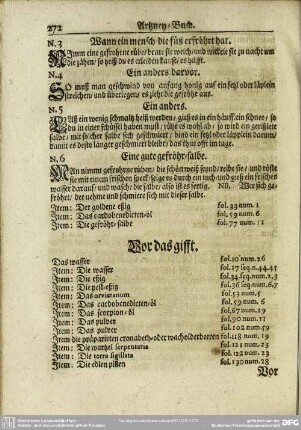 272 Artzney-Buch.
N. 3 Wann ein mensch die füß erfröhrt hat.
Nimm eine gefrohrne rübe/ brate sie weich/ und wickle sie zu nacht um
die zähen/ so heiß du es erleiden kanst/ es hilfft.
N. 4 Ein anders darvor.
So muß man geschwind von anfang honig auf ein setzl oder läplein
streichen/ und überlegen/ es ziehet die gefröhr aus.
N. 5 Ein anders.
Laß ein wenig schmaltz heiß werden/ gieß es in ein häffen schnee/ so
du in einer schüssel haben must/ rühr es wohl ab/ so wird ein
salbe/ mit solcher salbe sich geschmiert/ bind ein setzl oder läpplein darum/
damit es desto länger geschmeidig bleibt/ thue dieses öffter.
N. 6 Eine gute gefröhr-salbe.
Man nimmt gefrohrne rüben/ die schön weiß seynd/ reibe sie/ und röste
sie mit einem frischen speck/ seige es durch ein tuch und gieß ein frisches
wasser daraus/ und wasche die salbe/ also ist es fertig. NB. Wer sich ge-
fröhrt/ der nehme und schmiere sich mit dieser salbe.
Item: Der goldene eßig fol. 33 num. 1
Item: Das cardobenedicten-öl fol. 59 num. 6
Item: Die gefröhr-salbe fol. 77 num. 11
Vor das gifft.
Das wasser fol. 10 num. 26
Item: Die wasser fol. 17 seq. n. 44. 45
Item: Die eßig fol. 34 seq. num. 2. 3
Item: Die pest-eßig fol. 36 seq. num. 6. 7
Item: Das orvietanum fol. 53 num. 5
Item: Das cardobenedicten-öl fol. 59 num. 6
Item: Das scorpion-öl fol. 67 num. 19
Item: Das pulver fol. 90 num. 11
Item: Das pulver fol. 102 num. 59
Item: die präparirten cronabeth-oder wacholderbeeren fol. 118 num. 19
Item: Die wurtzel serpentaria fol. 121 num. 22
Item: Die terra sigillata fol. 122 num. 23
Item: Die edlen pillen fol. 130 num. 28
Vor